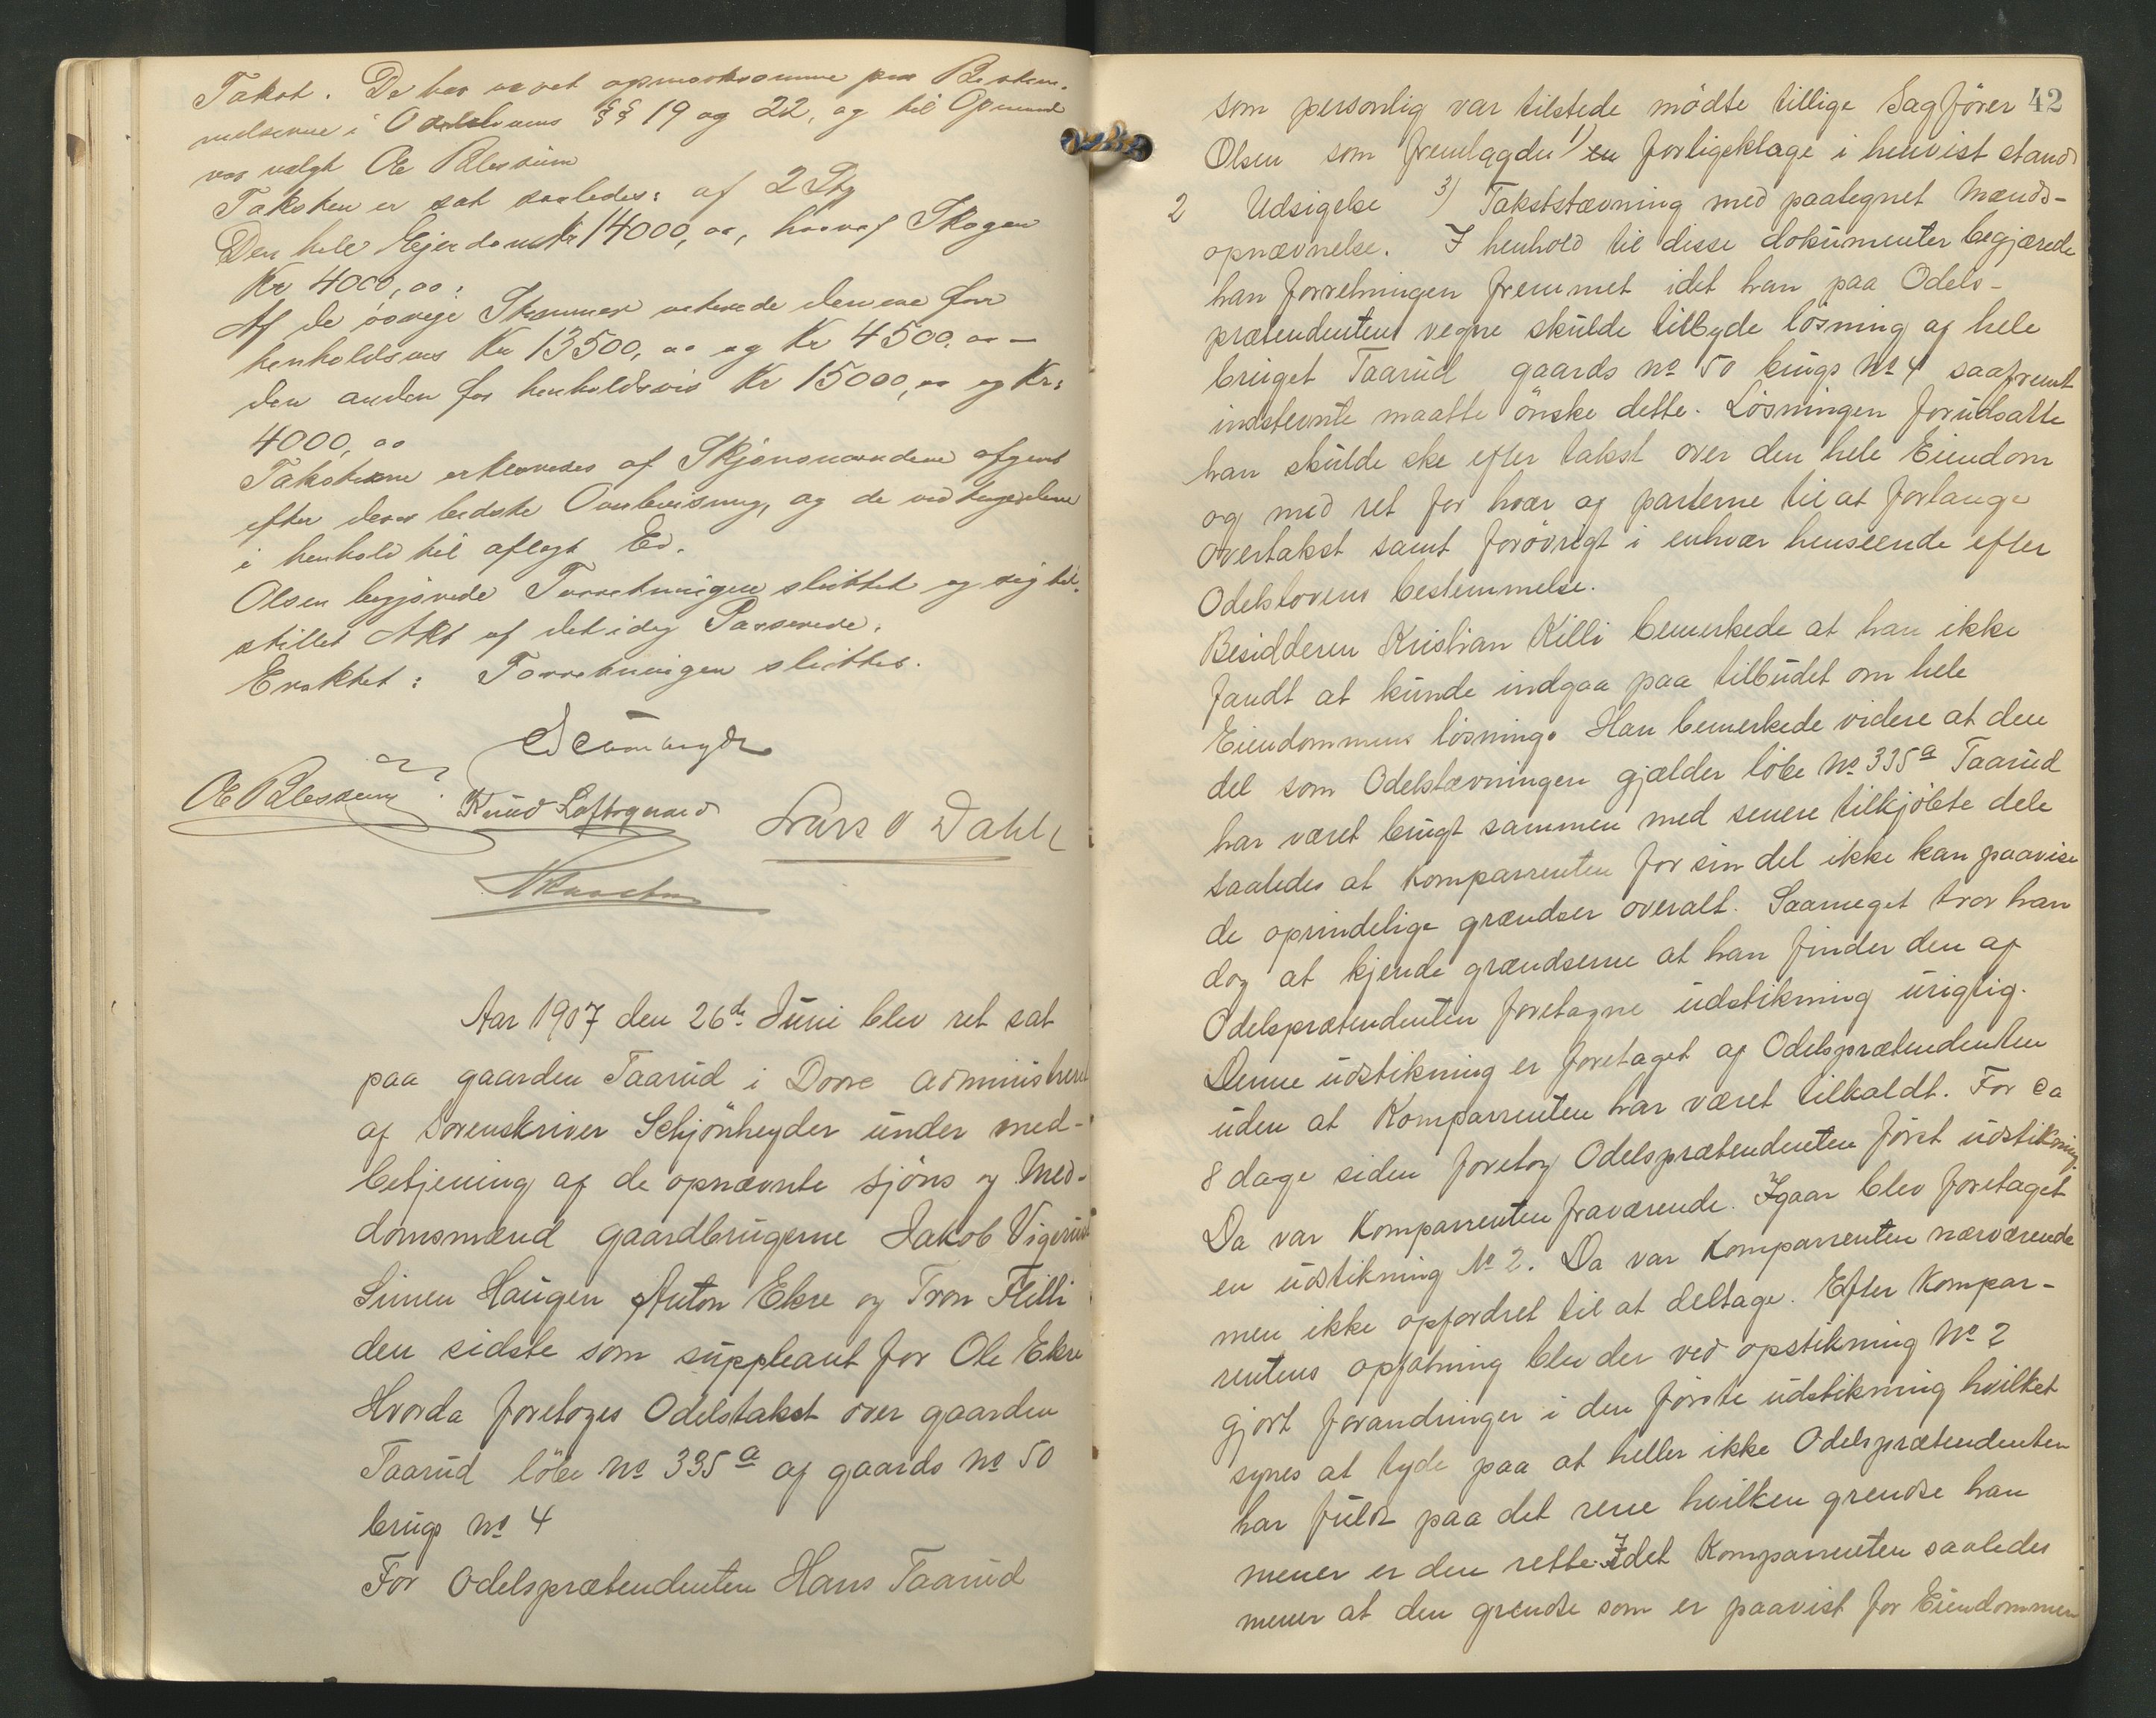 Takst. De har været opmerksomme paa Bestem-
melserne i Odelslovens §§ 19 og 22, og til Opmand
var valgt Ole Blessum
Taksten er sat saaledes: af 2 Stg
Den hele Eiendom Kr 14000,00, hvoraf Skogen
Kr 4000,00.
Af de øvrige Stemmer voterede den ene for
henholdsvis Kr 13500,00 og Kr 4500.00 —
den anden for henholdsvis Kr 15000,00 og Kr:
4000,00
Taksterne erklæredes af Skjønsmændene afgivet
efter deres bedste Overbevisning, og de vedtoges dem
i henhold til aflagt Ed.
Olsen begjærede Forretningen sluttet og sig til-
stillet Akt af det idag Passerede.
Eraktet: Forretningen sluttes.
Ole Blessum
Knud Loftsgaard
Lars O Dahle
Aar 1907 den 26de Juni blev ret sat
paa gaarden Taarud i Dovre administreret
af Sorenskriver Schjönheyder under med-
betjening af de opnævnte sjöns og Med-
domsmænd gaardbrugerne Jakob Vigerust
Simen Haugen Anton Ekre og Tron Flilli
den sidste som suppleant for Ole Ekre
Hvorda foretoges Odelstakst over gaarden
Taarud löbe No 335a af gaards No 50
brugs No 4
For Odelsprætendenten Hans Taarud
42
som personlig var tilstede mödte tillige Sagförer
Olsen som fremlagde 1) en forligsklage i henvist stand
2 Udsigelse 3) Takststævning med paategnet Mænds-
opnævnelse. I henhold til disse dokumenter begjærede
han forretningen fremmet idet han paa Odels-
prætendentens vegne skulde tilbyde lösning af hele
bruget Taarud gaards No 50 brugs No 4 saafremt
indstevnte maatte önske dette. Lösningen forudsatte
han skulde ske efter takst over den hele Eiendom
og med ret for hvær af parterne til at forlange
overtakst samt forövrigt i enhvær henseende efter
Odelslovens bestemmelse.
Besidderen Kristian Killi bemerkede at han ikke
fandt at kunde indgaa paa tilbudet om hele
Eiendommens lösning. Han bemerkede videre at den
del som Odelstævningen gjælder löbe No 335a Taarud
har været brugt sammen med senere tilkjöbte dele
saaledes at Komparrenten for sin del ikke kan paavise
de oprindelige grændser overalt. Saameget tror han
dog at kjende grændserne at han finder den af
Odelsprætendenten foretagne udstikning urigtig.
Denne udstikning er foretaget af Odelsprætendenten
uden at Komparrenten har været tilkaldt. For ca
8 dage siden foretog Odelsprætendenten först udstikning.
Da var Komparrenten fraværende. Igaar blev foretaget
en udstikning No 2. Da var Komparrenten nærværende
men ikke opfordret til at deltage. Efter Kompar-
rentens opfatning blev der ved opstikning No 2
gjort forandringer i den förste udstikning hvilket
synes at tyde paa at heller ikke Odelsprætendenten
har fuldt paa det rene hvilken grendse han
mener er den rette. Idet Komparrenten saaledes
mener at den grendse som er paavist for Eiendommen